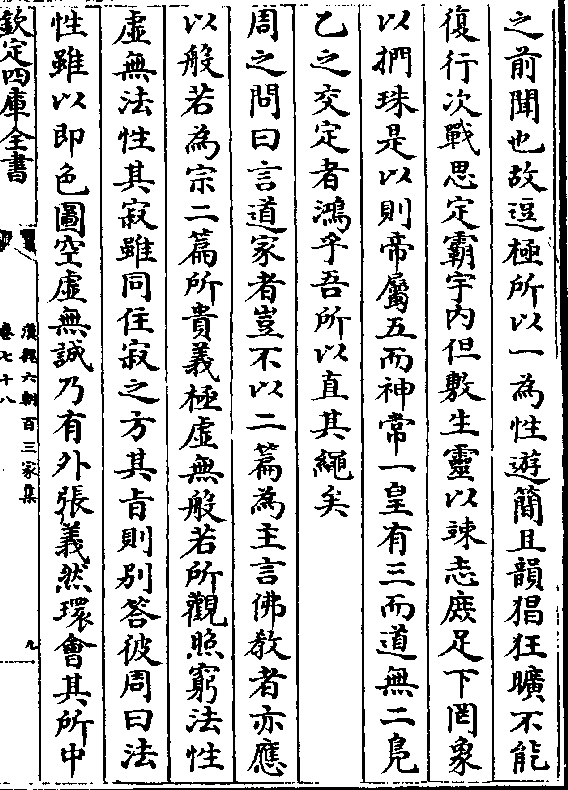 之前聞也故逗極所以一為性遊簡且韻猖狂曠不能
復行次戰思定霸宇内但敷生靈以竦志庶足下罔象
以捫珠是以則帝屬五而神常一皇有三而道無二鳧
乙之交定者鴻乎吾所以直其繩矣
周之問曰言道家者豈不以二篇為主言佛教者亦應
以般若為宗二篇所貴義極虚無般若所觀照窮法性
虚無法性其寂雖同住寂之方其旨則别答彼周曰法
性雖以即色圖空虚無誠乃有外張義然環會其所中
欽定四庫全書
漢魏六朝百三家集
卷七十八
九